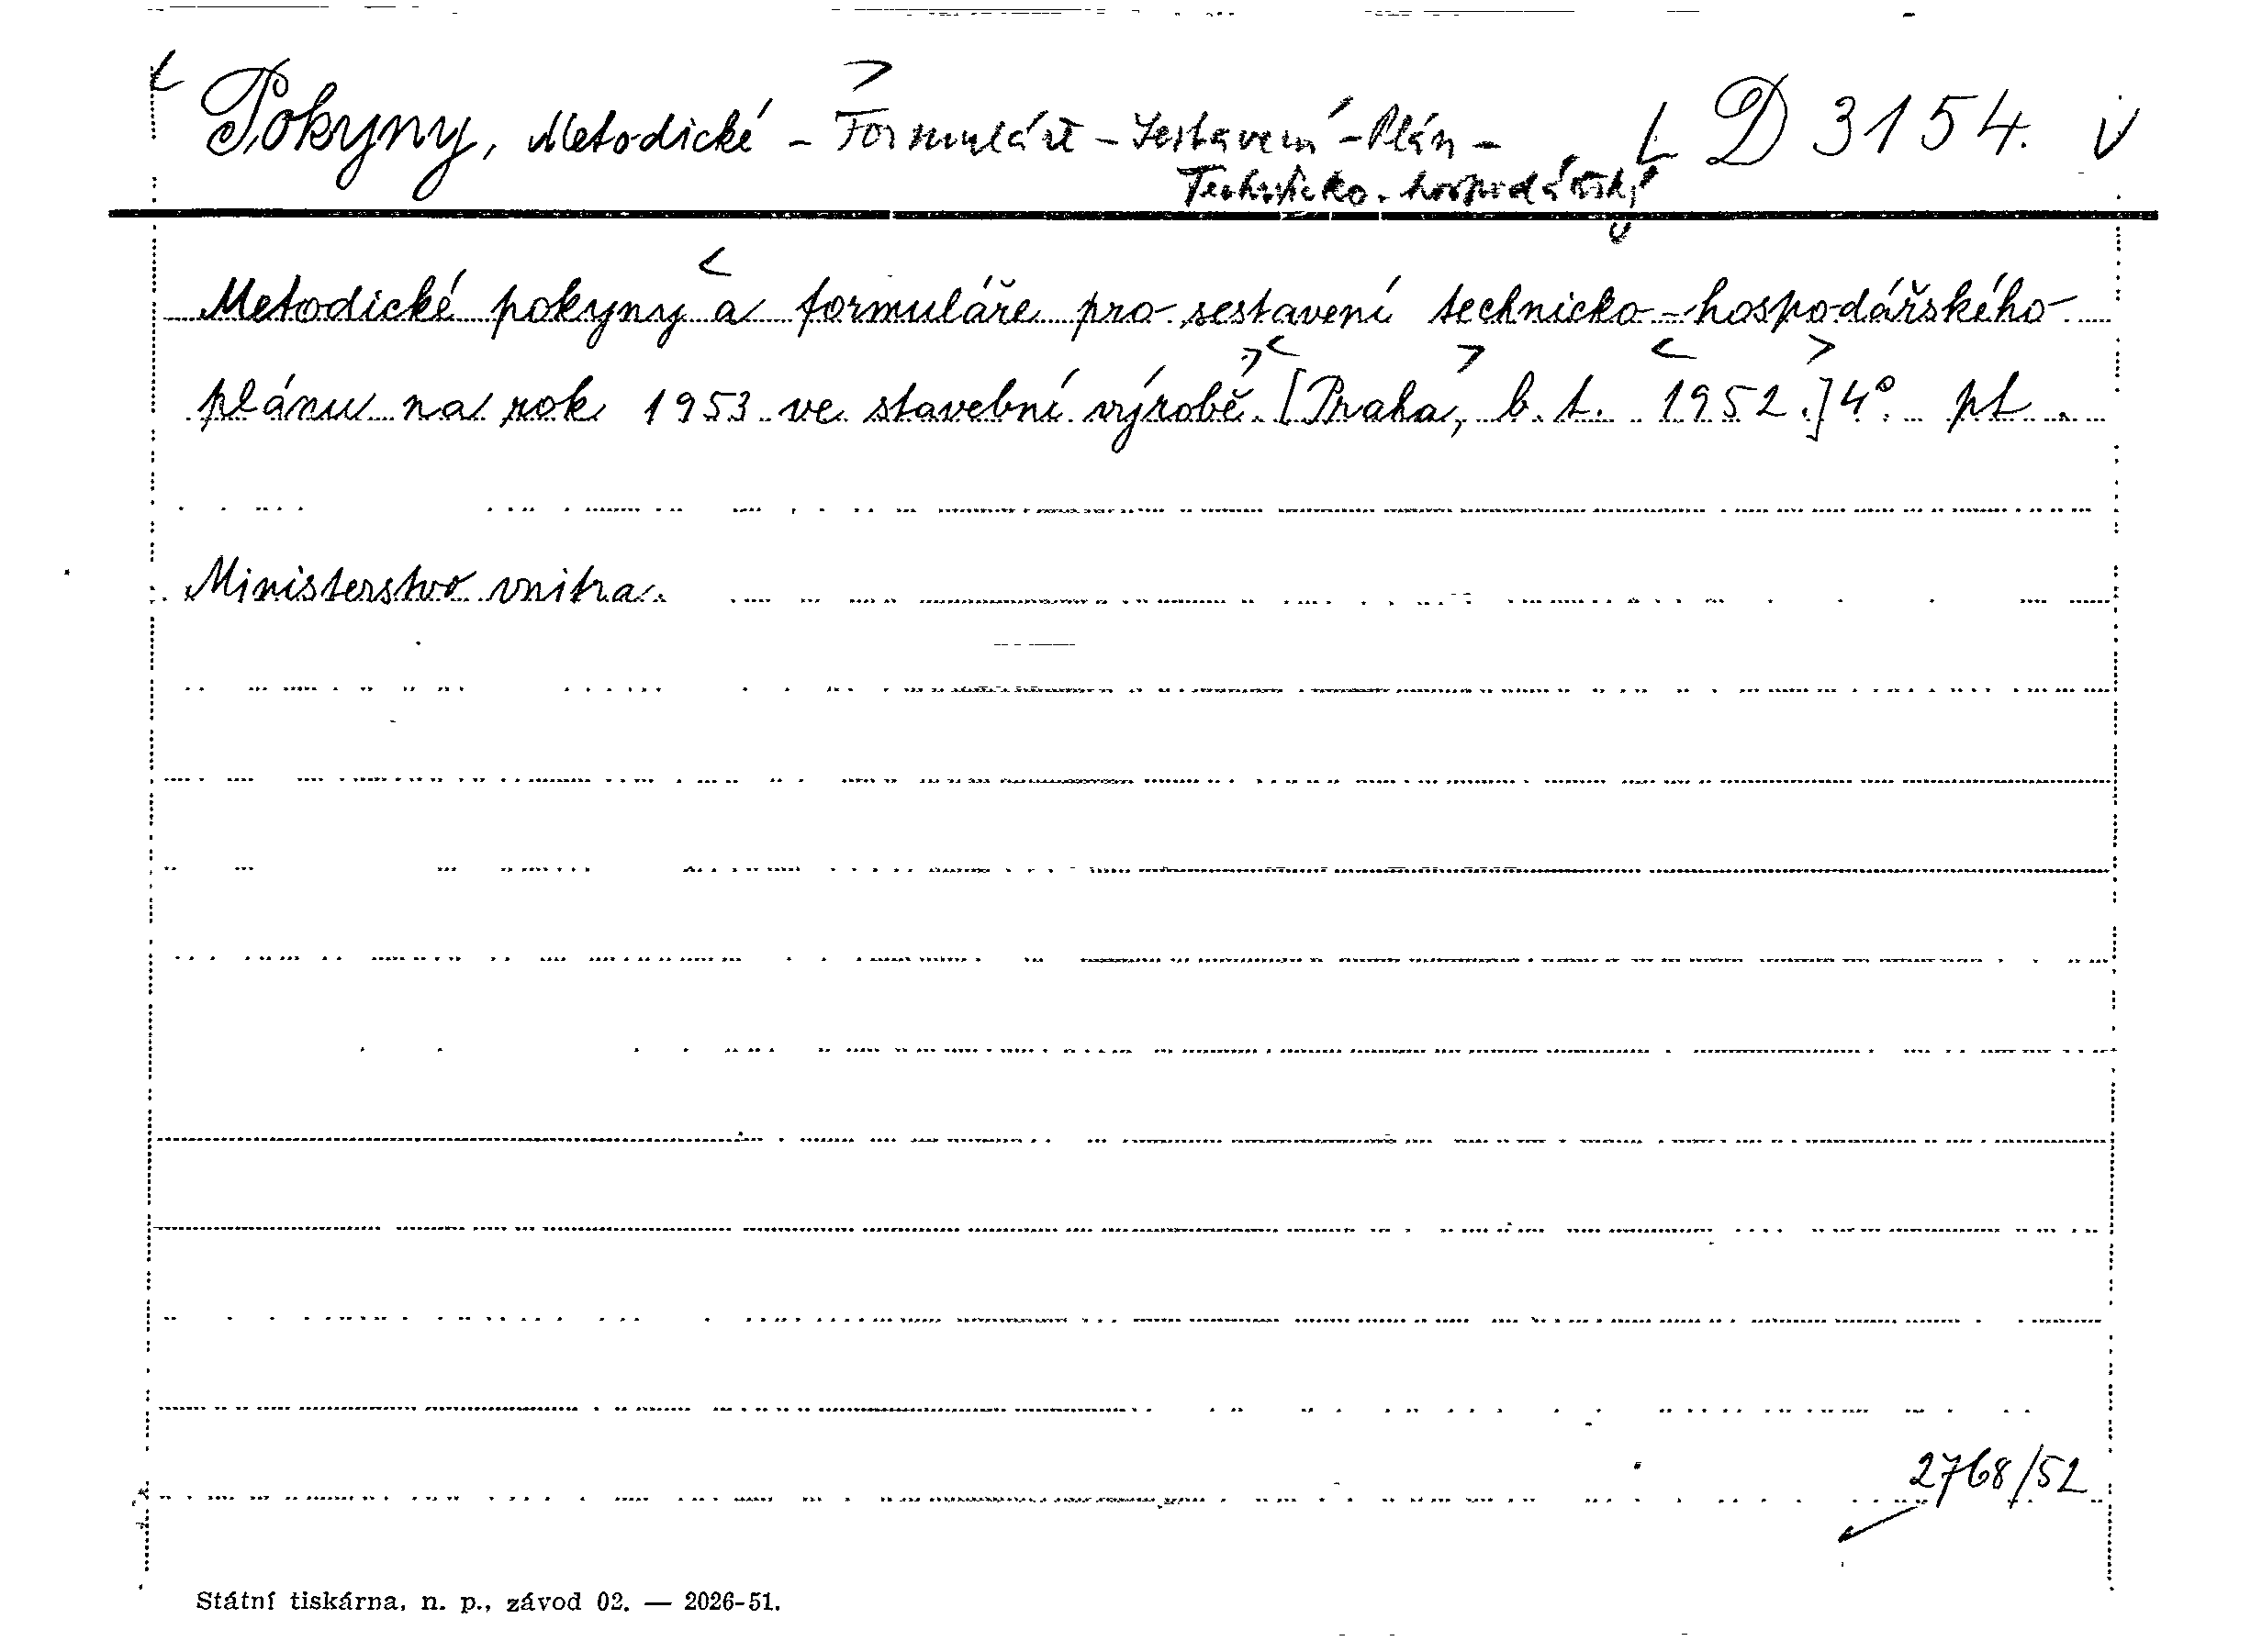 Pokyny, Metodické - Formuláře - Sestavení - Plán - D 3154.
Technicko-hospodářský
Metodické pokyny a formuláře pro sestavení technicko-hospodářského
plánu na rok 1953 ve stavební výrobě. [Praha, b. t. 1952.] 4°. pt.
Ministerstvo vnitra.
2768/52
Státní tiskárna, n. p., závod 02. — 2026-51.